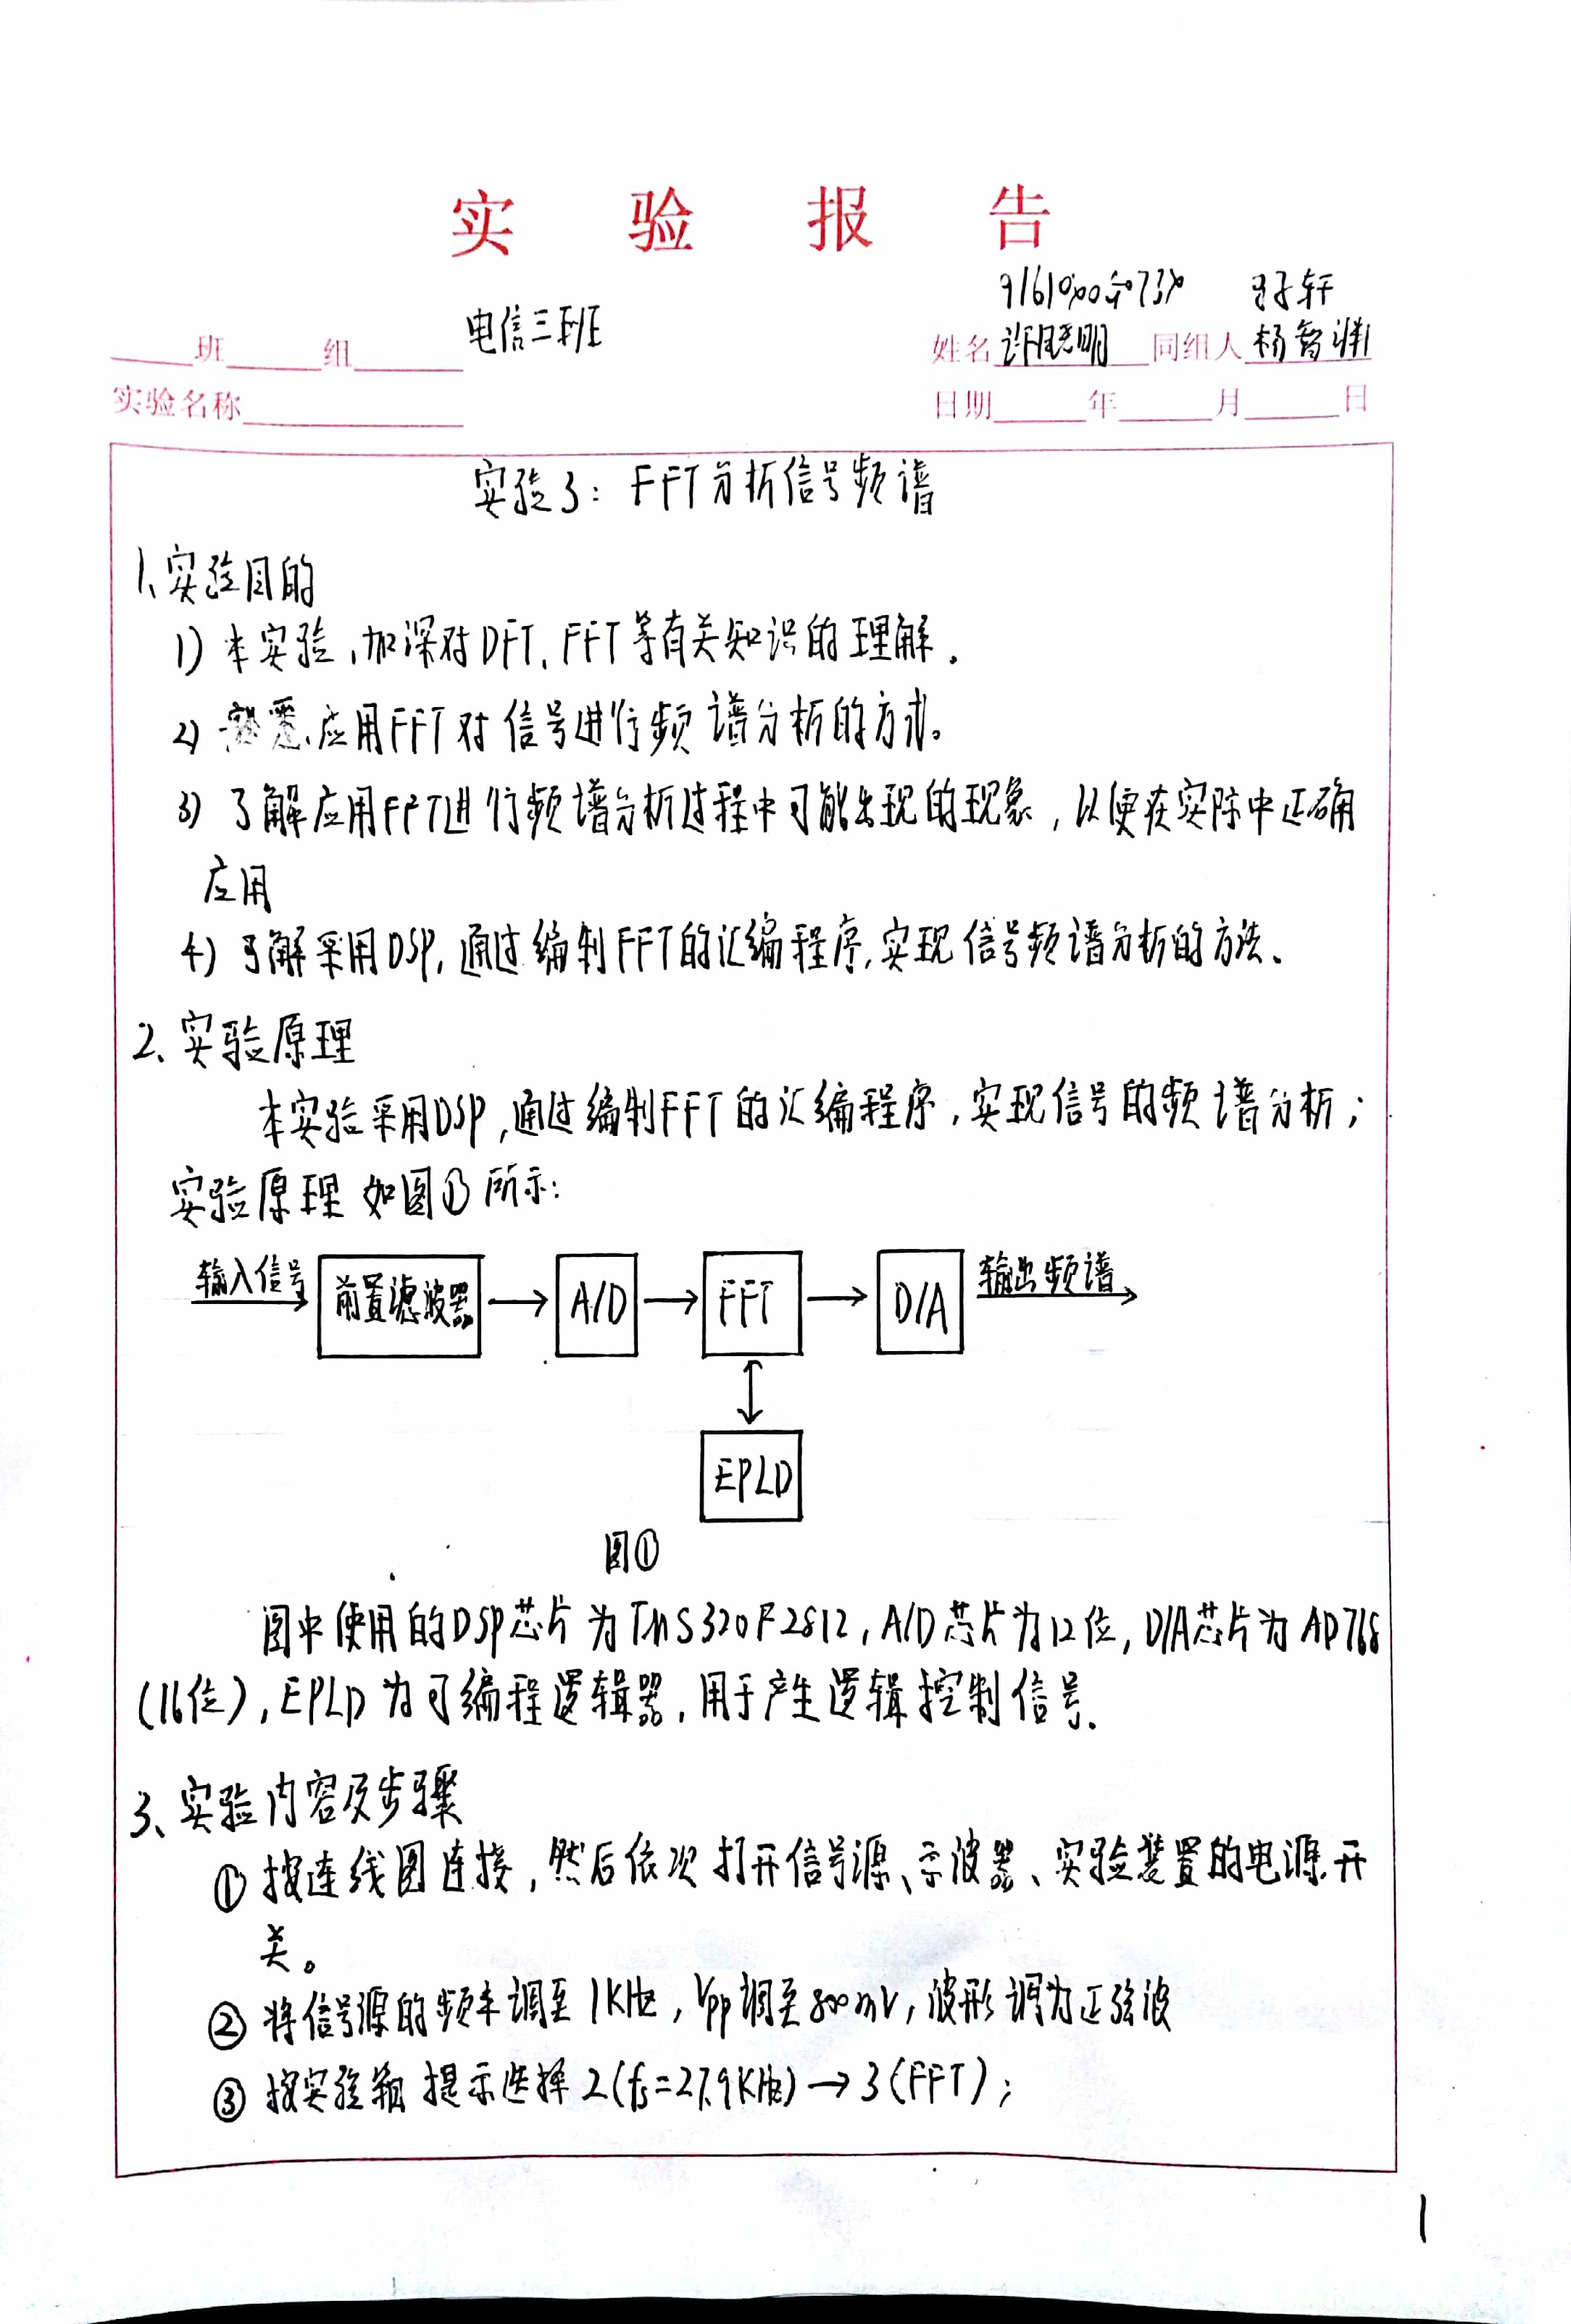 实验报告
电信三班
班 组
姓名 许晓明 同组人 杨智渊
实验名称
日期 年 月 日
实验3：FFT分析信号频谱
1、实验目的
1）本实验，加深对DFT、FFT等有关知识的理解．
2）熟悉应用FFT对信号进行频谱分析的方式。
3）了解应用FFT进行频谱分析过程中可能出现的现象，以便在实际中正确
应用
4）了解采用DSP，通过编制FFT的汇编程序，实现信号频谱分析的方法、
2、实验原理
本实验采用DSP，通过编制FFT的汇编程序，实现信号的频谱分析；
实验原理如图①所示：
输入信号 前置滤波器 A/D FFT D/A 输出频谱
EPLD
图①
图中使用的DSP芯片为TMS320F2812，A/D芯片为12位，D/A芯片为AD768
(16位)，EPLD为可编程逻辑器，用于产生逻辑控制信号．
3、实验内容及步骤
① 按连线图连接，然后依次打开信号源、示波器、实验装置的电源开
关。
② 将信号源的频率调至1KHz，Vpp调至800mV，波形调为正弦波
③ 按实验箱提示选择2(fs=27.9KHz)→3(FFT)；
1